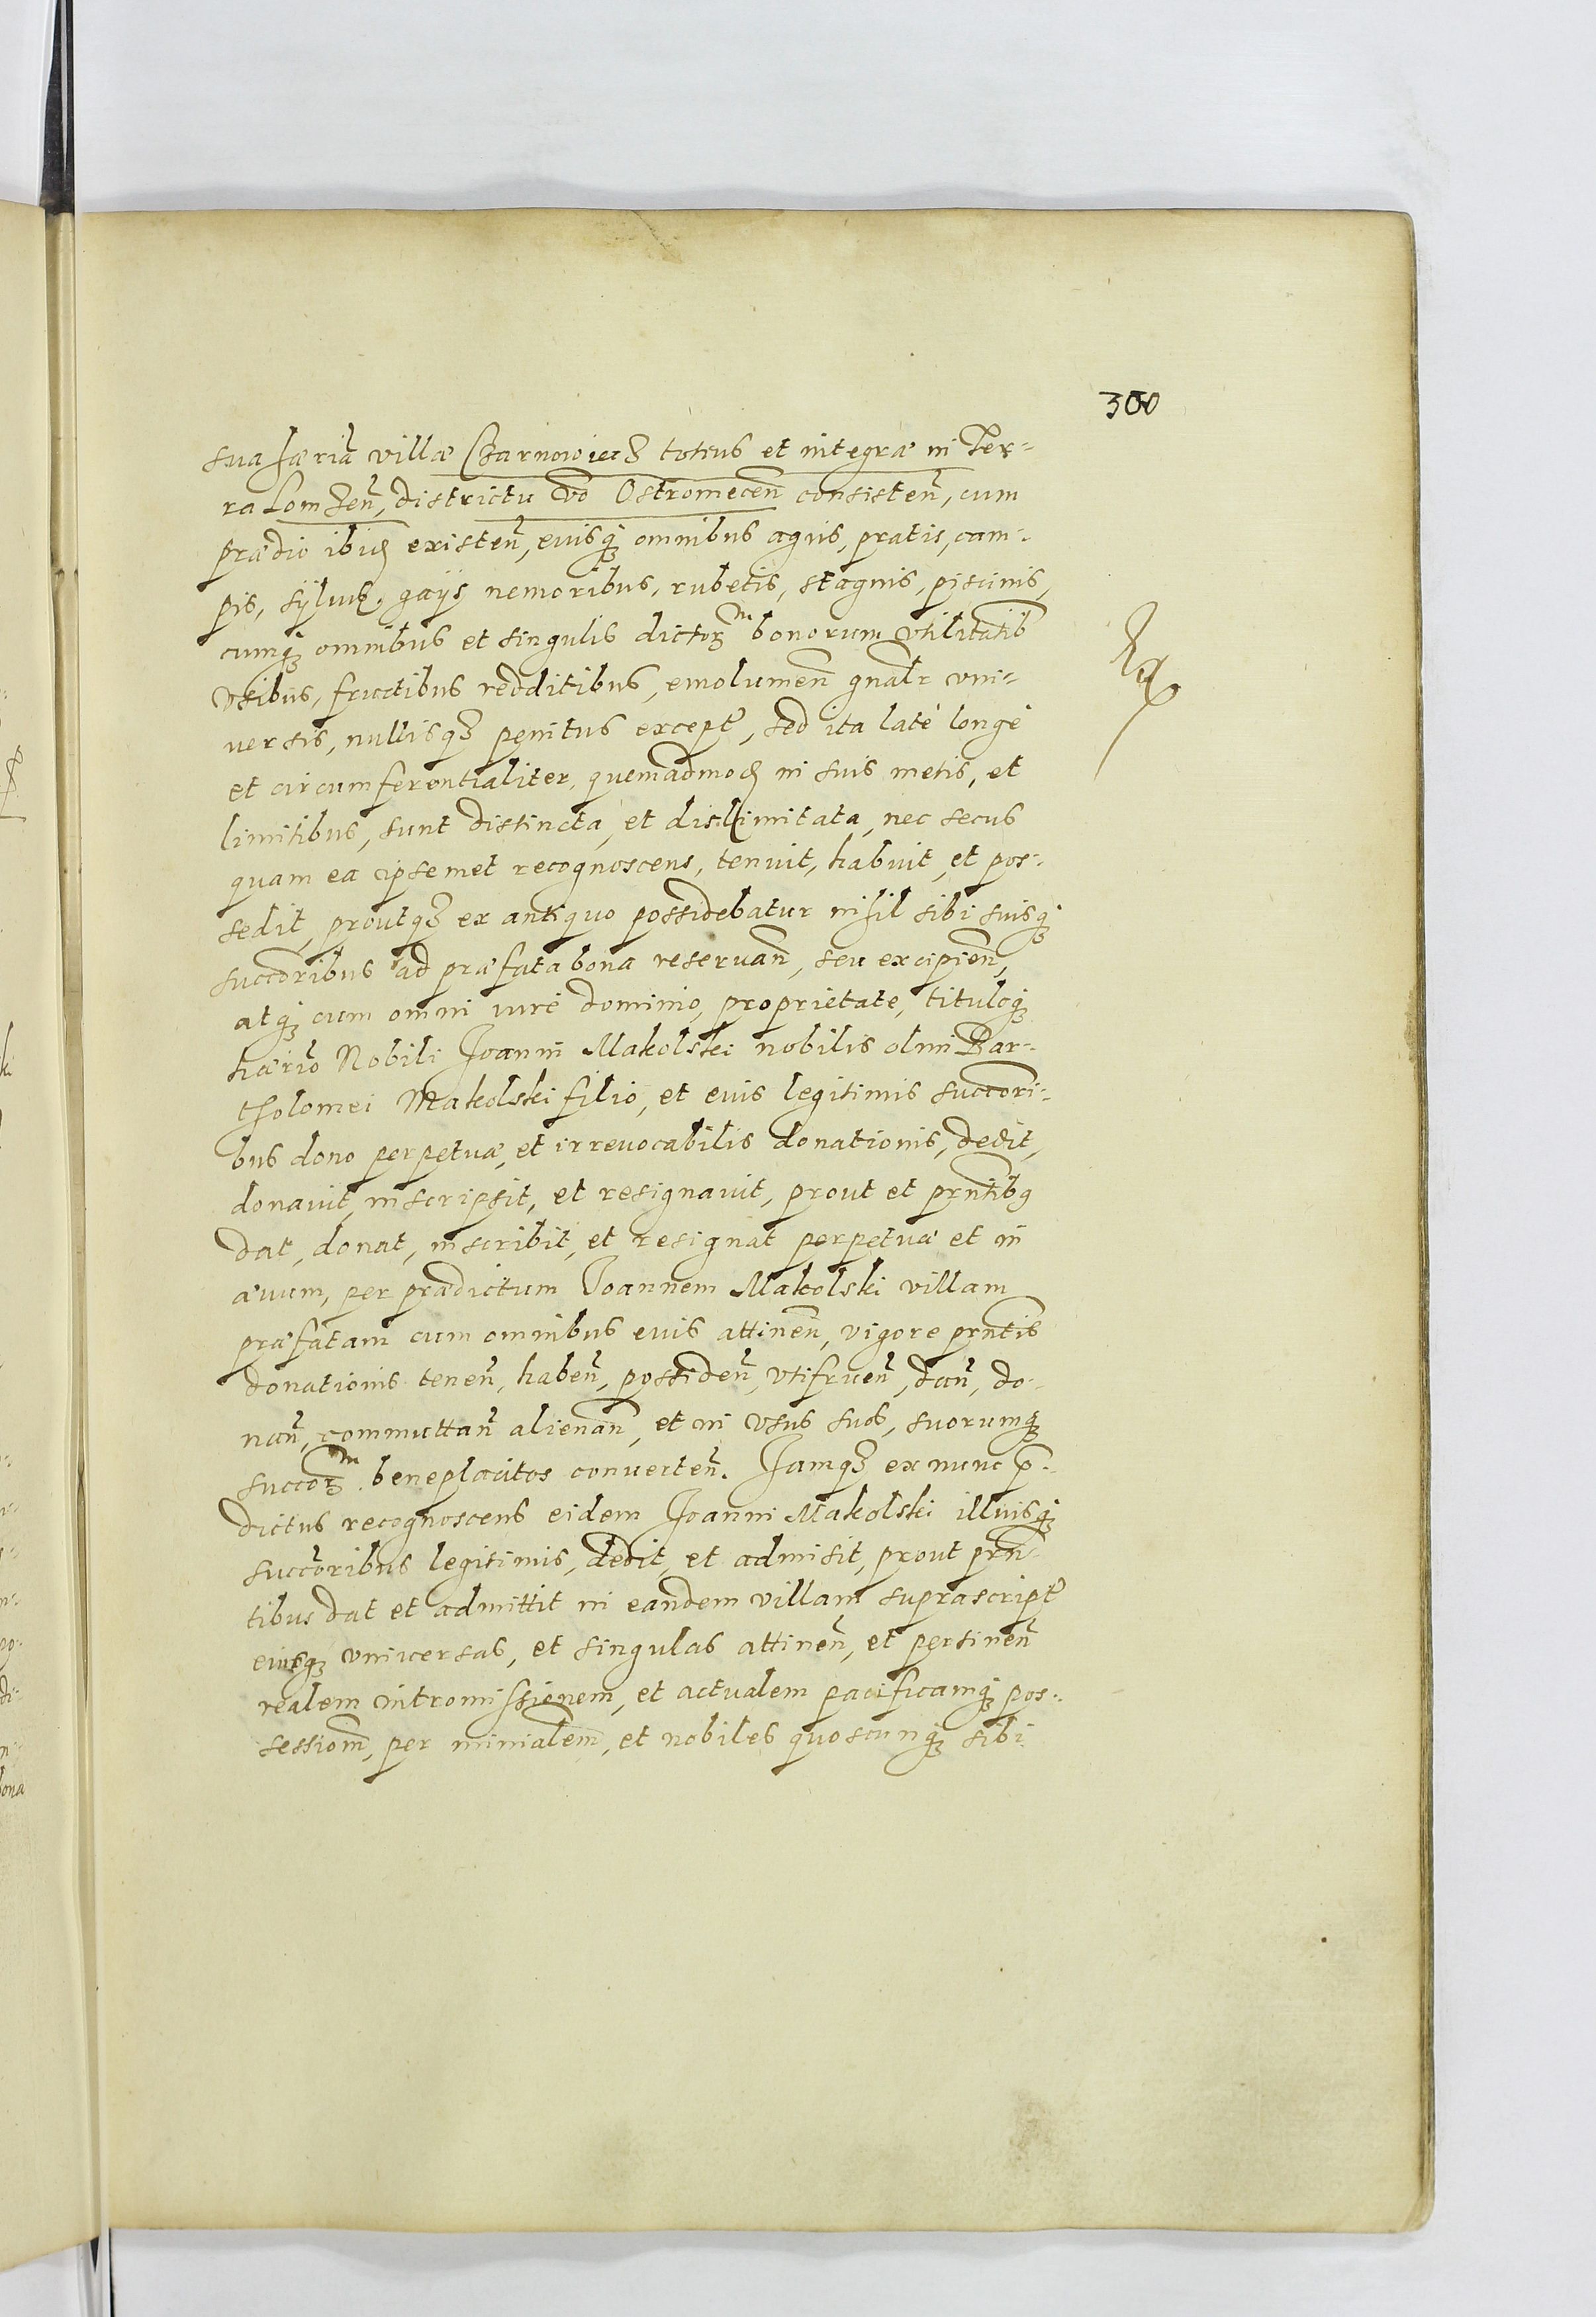 300
sua hæria villæ Czarnowiecz totius et integræ in Ter-
ra Lomzen, districtu vo Ostromecen consisten, cum
prædio ibid existen, euisq omnibus agris, pratis, cam-
pis, sÿluis, gaÿs nemoribus, rubetis, stagnis, piscinis,
cumq omnibus et singulis dictorm bonorum vtilitatib
vsibus, fructibus redditibus, emolumen gnalr vni-
uersis, nullisq penitus except, sed ita latè longè
et circumferentialiter, quemadmod in suis metis, et
limitibus, sunt distincta, et dislimitata, nec secus
quam ea ipsemet recognoscens, tenuit, habuit, et pos-
sedit, proutq ex antiquo possidebatur nihil sibi suisq
succoribus ad præfata bona reseruan, seu excipien,
atq cum omni iure dominio, proprietate, tituloq
hærio Nobili Joanni Makolski nobilis olim Bar-
tholomei Makolski filio, et euis legitimis succori-
bus dono perpetuæ, et irreuocabilis donationis, dedit,
donauit, inscripsit, et resignauit, prout et prntibq
dat, donat, inscribit, et resignat perpetuæ et in
æuum, per prædictum Joannem Makolski villam
præfatam cum omnibus euis attinen, vigore prntis
donationis tenen, haben, possiden, vtifruen, dan, do-
nan, commuttan alienan, et in vsus suos, suorumq
succorm beneplacitos conuerten. Jamq ex nunc p-
dictus recognoscens eidem Joanni Makolski illuisq
succoribus legitimis, dedit, et admisit, prout prn-
tibus dat et admittit in eandem villam suprascript
eiusq vniuersas, et singulas attinen, et pertinen
realem intromissionem, et actualem pacificamq pos-
sessiom, per minialem, et nobiles quoscunq sibi